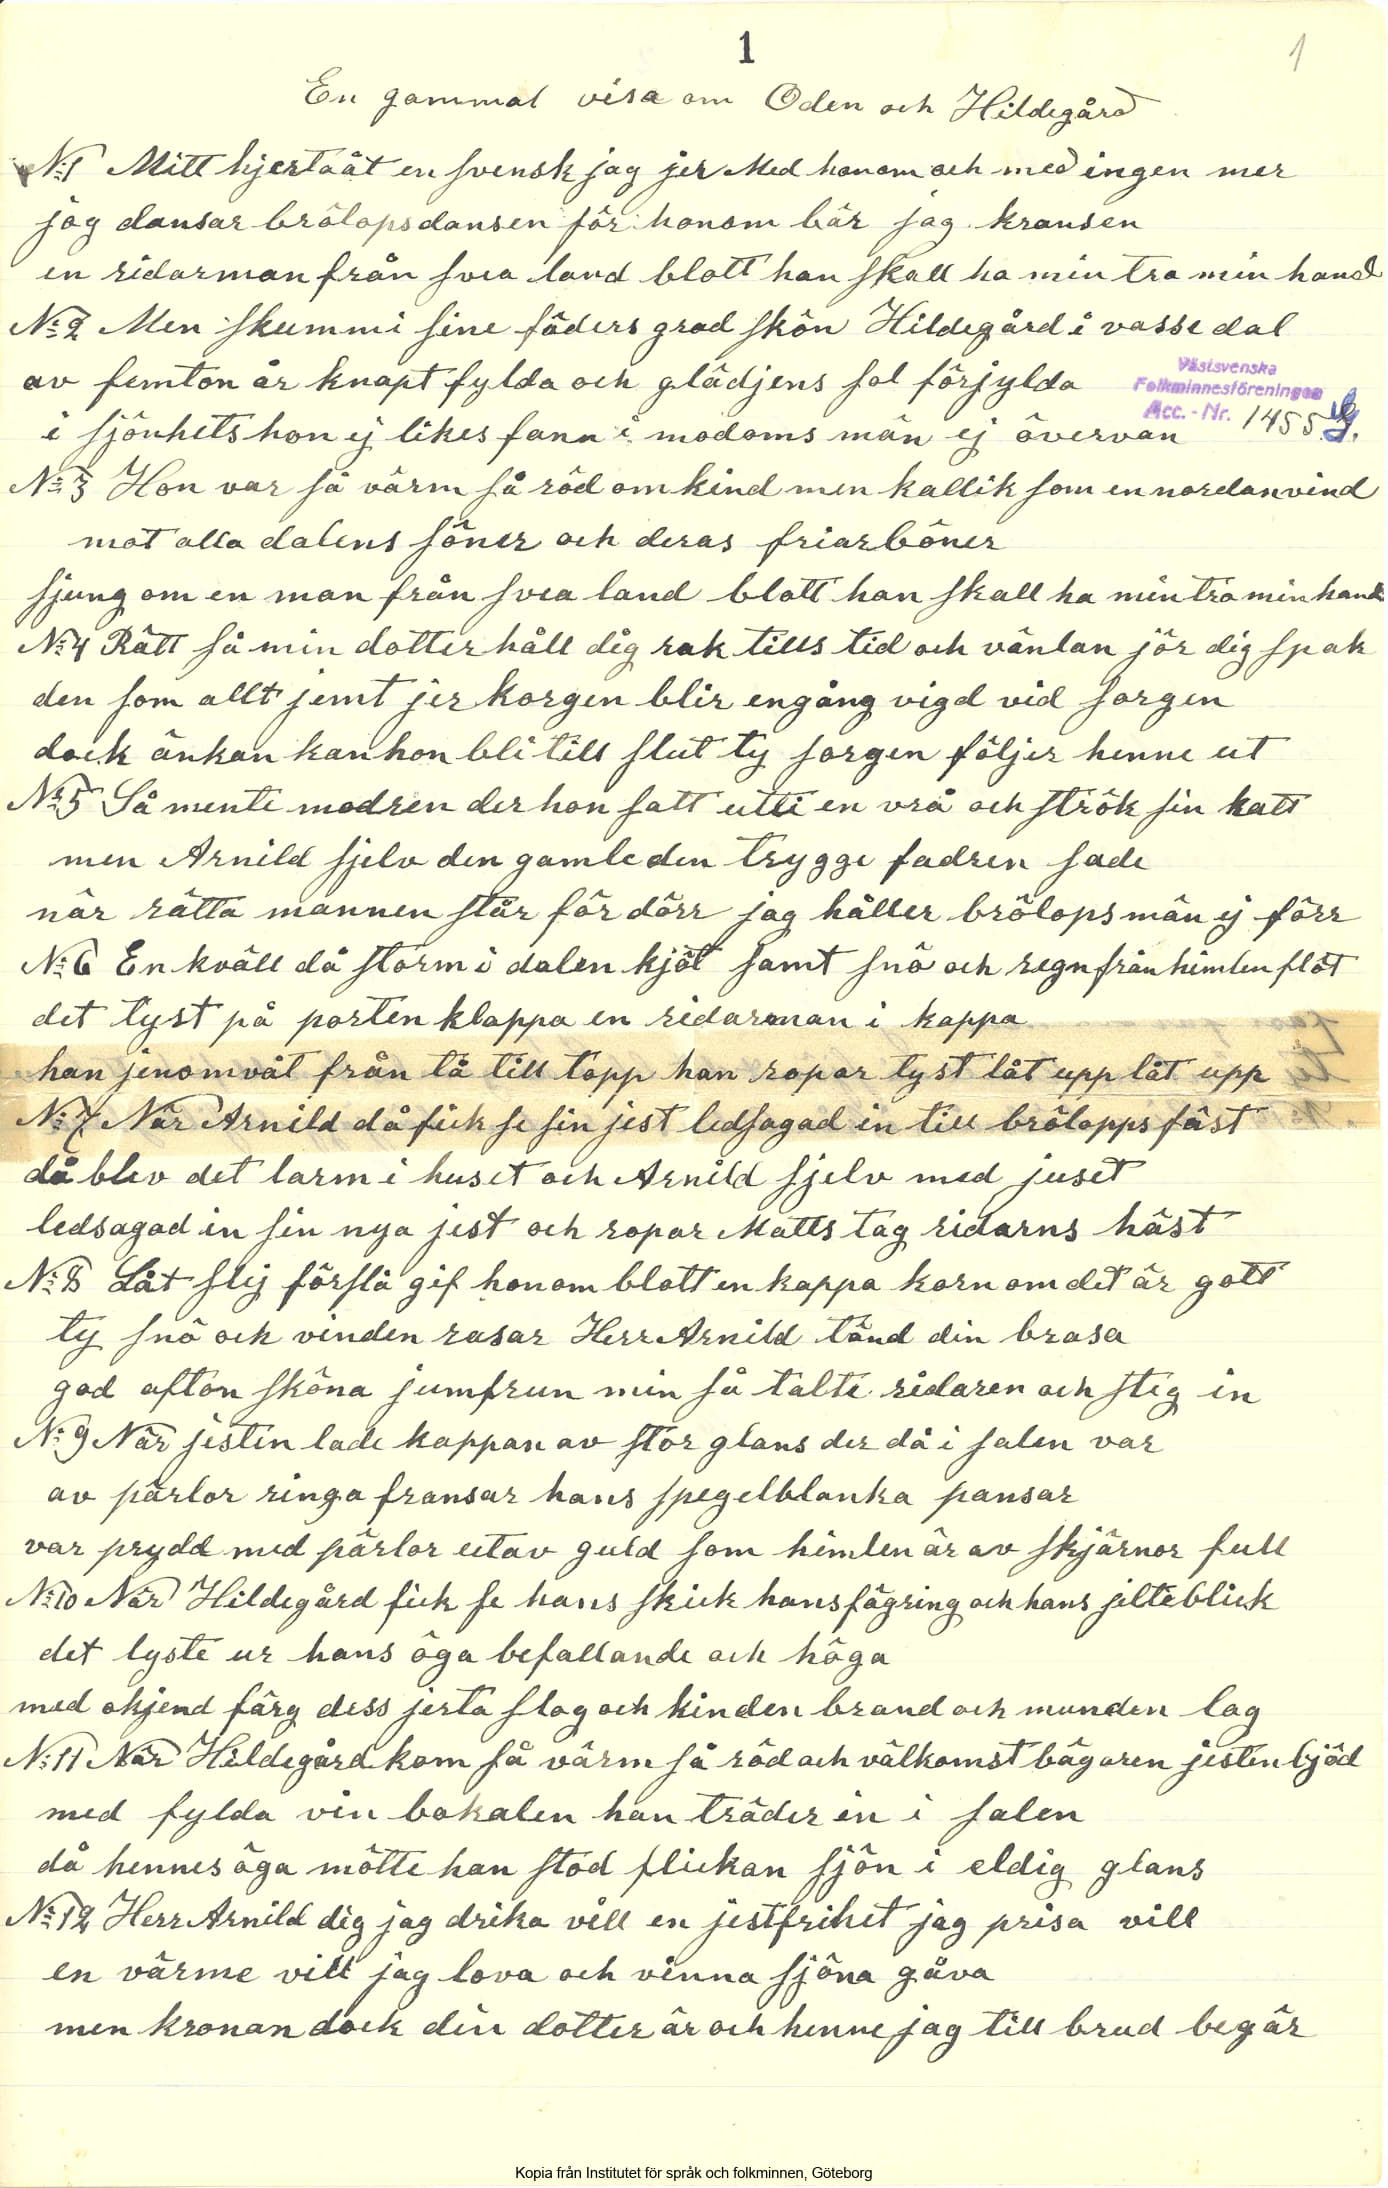 1
1
En gammal visa om Oden och Hildegård
№1 Mitt hjerta åt en svensk jag jer Med honom och med ingen mer
jag dansar brölopsdansen för honom bär jag kransen
en ridarman från svea land blott han skall ha min tro min hand
№2 Men skummi sine fäders grad skön Hildegård i vasse dal
av femton år knapt fylda och glädjens sol förjylda
Västsvenska
Folkminnesföreningen
Acc. - Nr. 1455 G.
i sjönhets hon ej likes fann i modoms män ej övervan
№3 Hon var så värm så röd om kind men kallik som en nordanvind
mot alla dalens söner och deras friarböner
sjung om en man från svea land blott han skall ha min tro min hand
№4 Rätt så min dotter håll dig rak tills tid och vänlan jör dig spak
den som allt jemt jer korgen blir engång vigd vid sorgen
dock änkan kan hon bli till slut ty sorgen följer henne ut
№5 Så mente modren der hon satt utti en vrå och strök sin katt
men Arnild sjelv den gamle den trygge fadren sade
när rätta mannen står för dörr jag håller brölops män ej förr
№6 En kväll då storm i dalen kjöt samt snö och regn från himlen flöt
det tyst på porten klappa en ridarman i kappa
han jenomvåt från tå till topp han ropar tyst låt upp låt upp
№7 När Arnild då fick se sin jest ledsagad in till brölopps fäst
då blev det larm i huset och Arnild sjelv med juset
ledsagad in sin nya jest och ropar Matts tag ridarns häst
№8 Låt slij förslå gif honom blott en kappa korn om det är gott
ty snö och vinden rasar Herr Arnild tänd din brasa
god afton sköna jumfrun min så talte ridaren och steg in
№9 När jesten lade kappan av stor glans der då i salen var
av pärlor ringa fransar hans spegelblanka pansar
var prydd med pärlor utav guld som himlen är av skjärnor full
№10 När Hildegård fick se hans skick hans fägring och hans jelteblick
det lyste ur hans öga befallande och höga
med okjend färg dess jerta slog och kinden brand och munden log
№11 När Hildegård kom så värm så röd och välkomst bägaren jesten bjöd
med fylda vin bokalen han träder in i salen
då hennes öga mötte han stod flickan sjön i eldig glans
№12 Herr Arnild dig jag drika vill en jestfrihet jag prisa vill
en värme vill jag lova och vinna sjöna gåva
men kronan dock din dotter är och henne jag till brud begär
Kopia från Institutet för språk och folkminnen, Göteborg